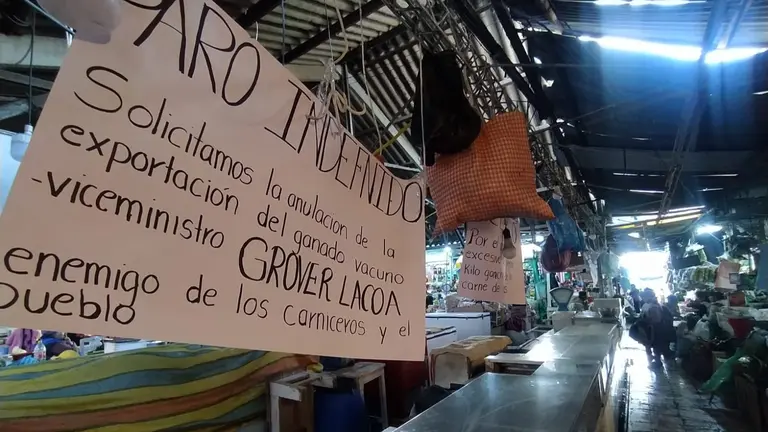 PARO INDEFNIDO
Solicitamos la anulacion de la
exportación del ganado vacuno
-viceministro GRÓVER LACOA
enemigo de los carniceros y el
pueblo
Por e
excesi
Kilo ganch
carne de